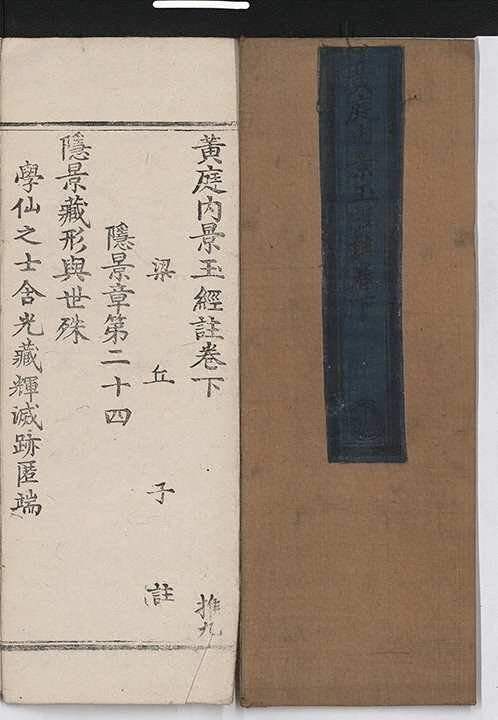 黃庭内景玉經註卷下
黃庭内景玉經註卷下 推九
梁丘子註
隱景章第二十四
隱景藏形與世殊
學仙之士含光藏輝滅跡匿端